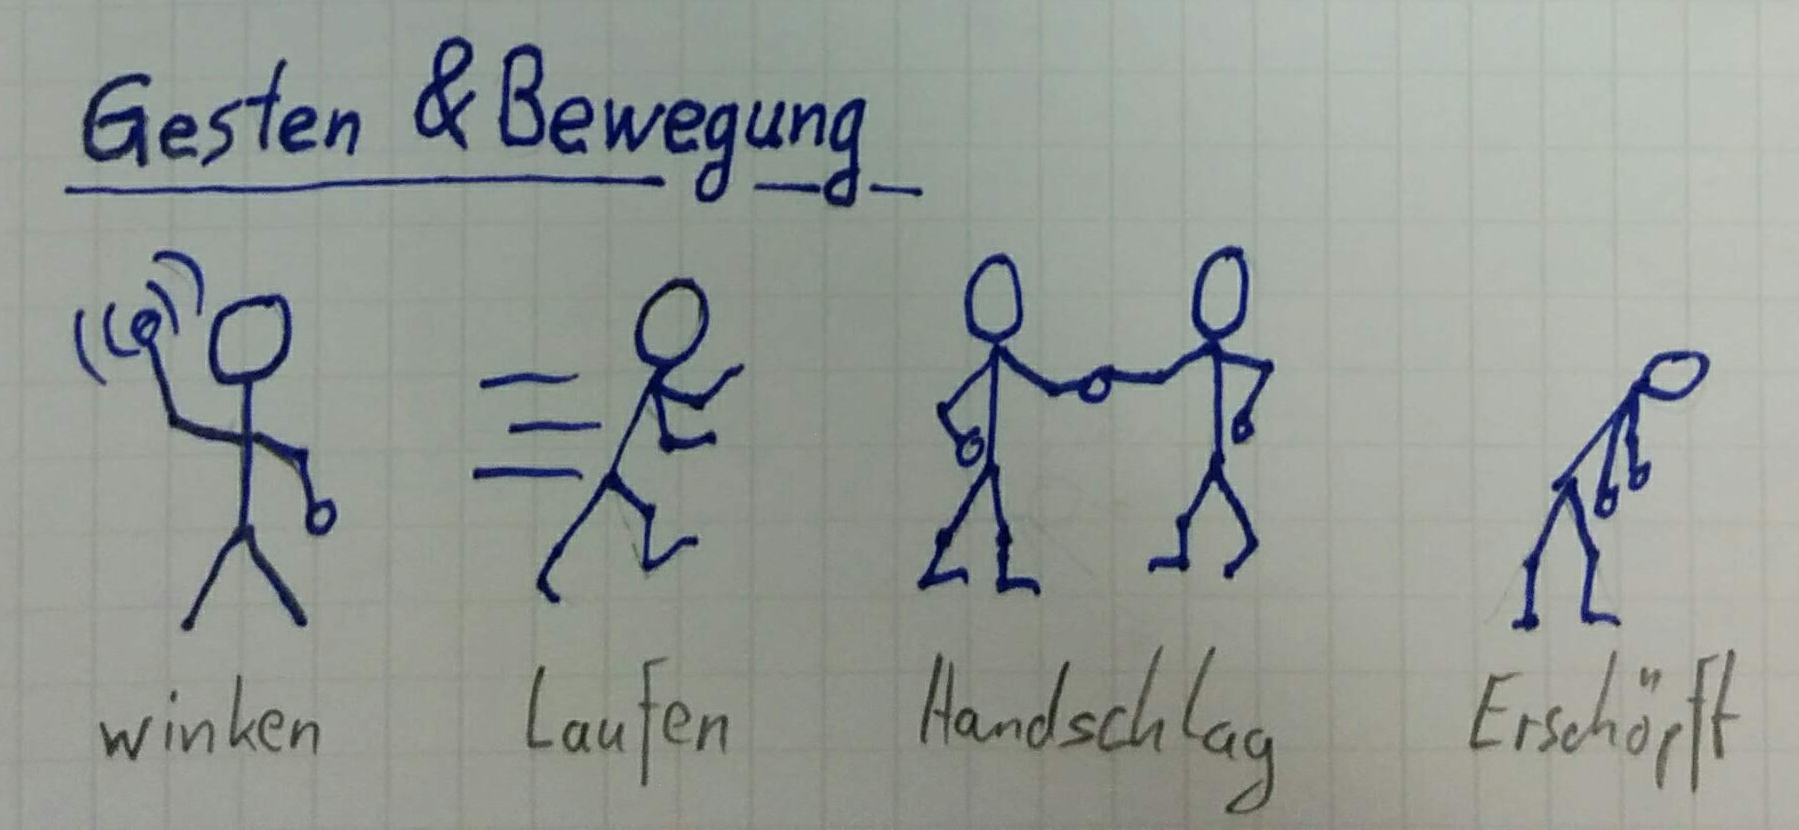 Gesten & Bewegung
winken Laufen Handschlag Erschöpft